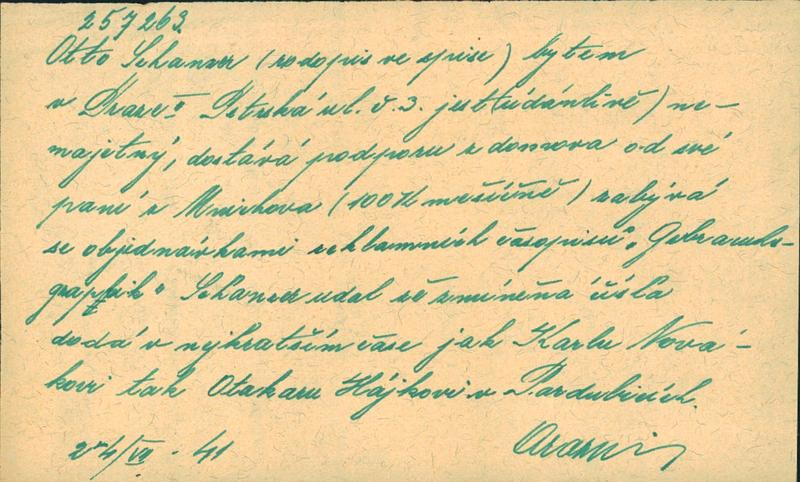 257263.
Otto Schanzer (rodopis ve spise) bytem
v Praze II Petrská ul. č. 3. jest (údánlivě) ne-
majetný, dostává podporu z domova od své
paní z Mnichova (100 K měsíčně) zabývá
se objednávkami reklamních časopisů „Gebrauchs-
graphik" Schanzer udal že zmíněná čísla
dodá v nejkratším čase jak Karlu Nová-
kovi tak Otakaru Hájkovi v Pardubicích.
24/VII - 41